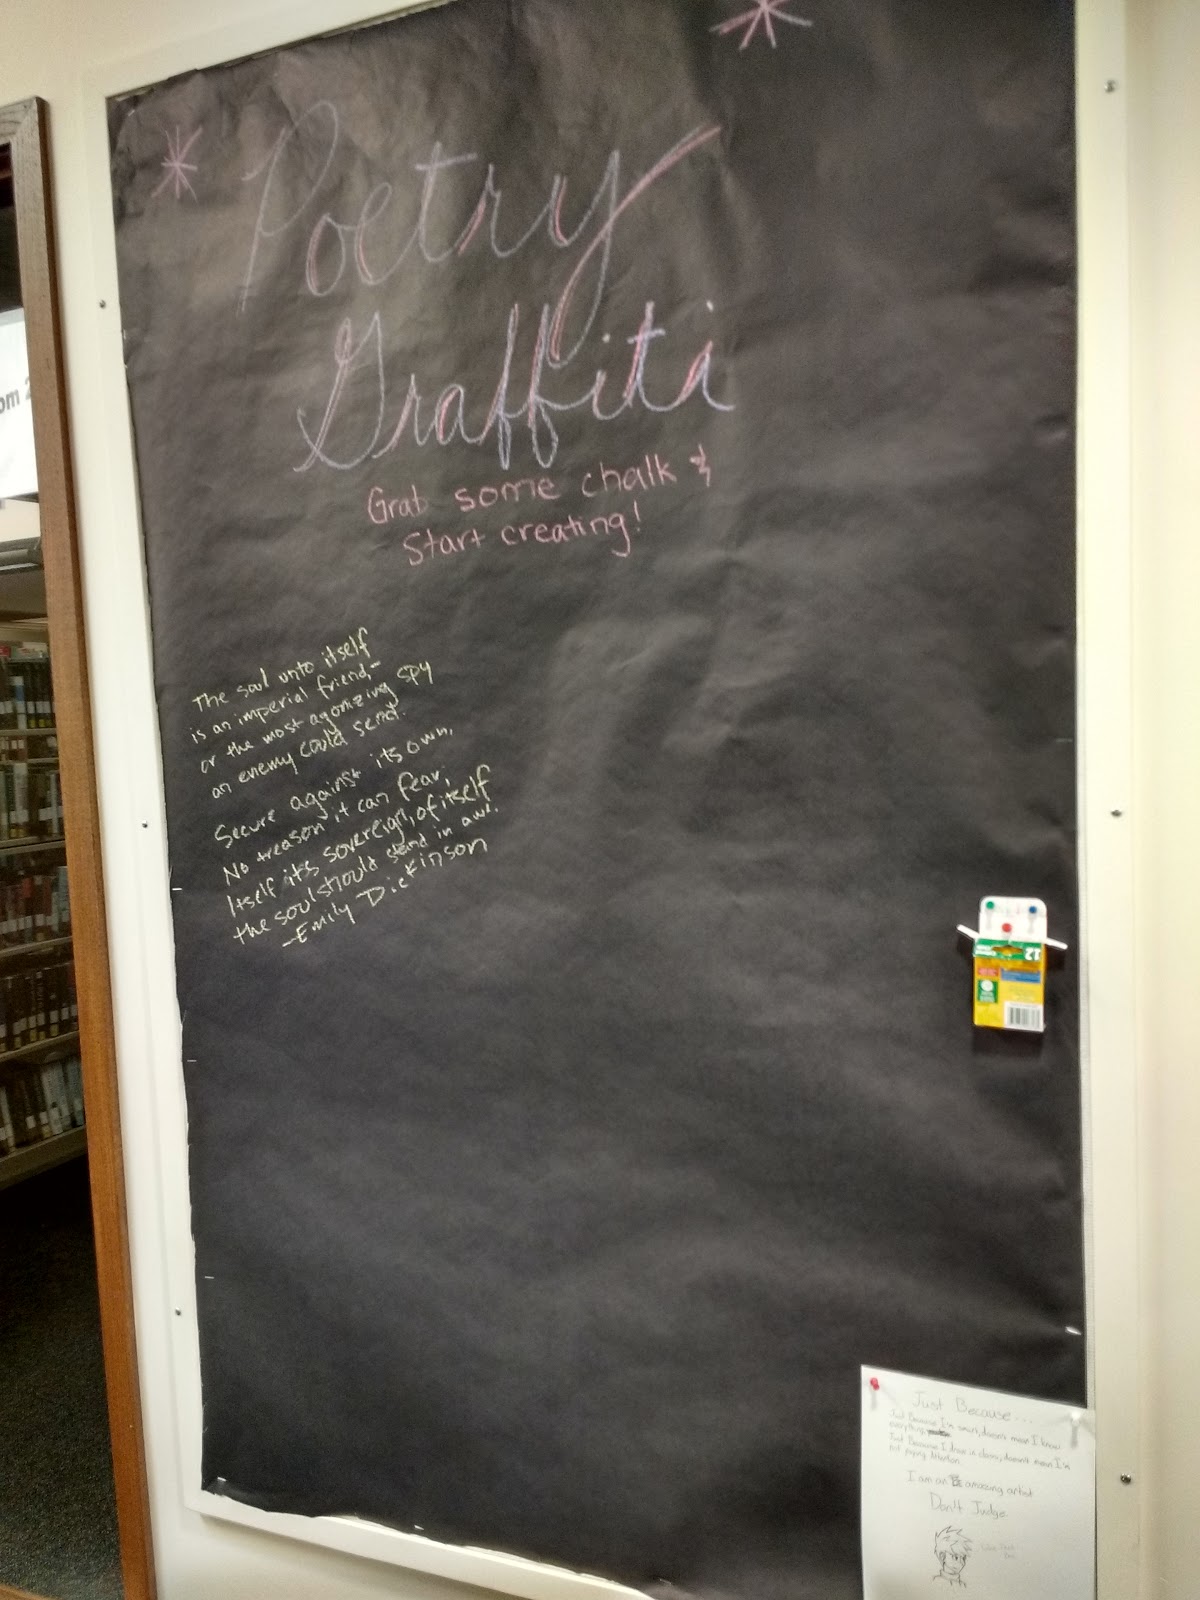 Poetry
Graffiti
Grab some chalk &
Start creating!
The soul unto itself
is an imperial friend-
or the most agonizing spy
an enemy could send.
Secure against its own,
No treason it can fear;
Itself its sovereign, of itself
the soul should stand in awe.
-Emily Dickinson
12
Just Because...
Just Because I'm smart, doesn't mean I know
everything
Just Because I draw in class, doesn't mean I'm
not paying attention.
I am an amazing artist
Don't Judge